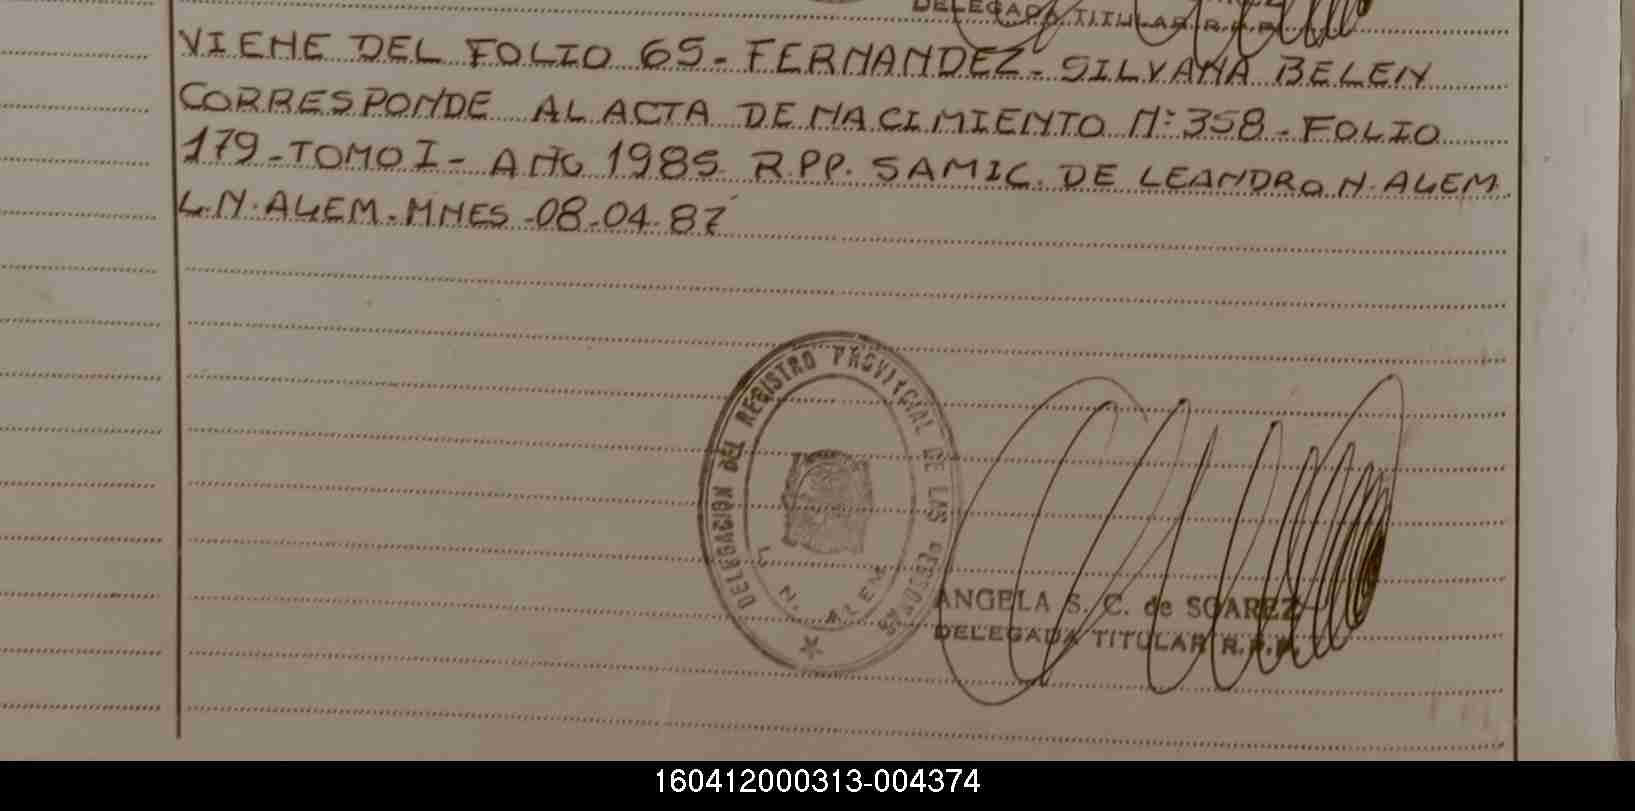 DELEGADA TITULAR R.P.P.
VIENE DEL FOLIO 65- FERNANDEZ- SILVANA BELEN
CORRESPONDE AL ACTA DE NACIMIENTO Nº 358- FOLIO
179-TOMO I- AÑO 1985 R.P.P. SAMIC. DE LEANDRO N. ALEM
L.N. ALEM- MNES -08-04-87
DELEGACION DEL REGISTRO PROVINCIAL DE LAS PERSONAS
L. N. ALEM
ANGELA S. C. de SOAREZ
DELEGADA TITULAR R.P.P.
160412000313-004374